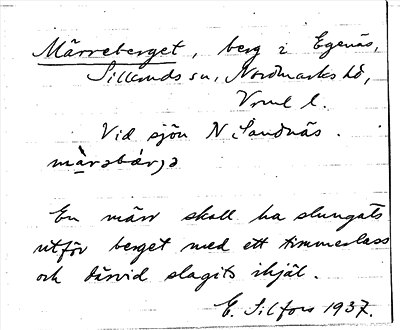 Märreberget, berg i Egenäs,
Silleruds sn, Nordmarks hd,
Vrml l.
Vid sjön N. Sandnäs.
mà̤rəbǽrjə
En märr skall ha slungats
utför berget med ett timmerlass
och därvid slagits ihjäl.
E. Silfors 1937.